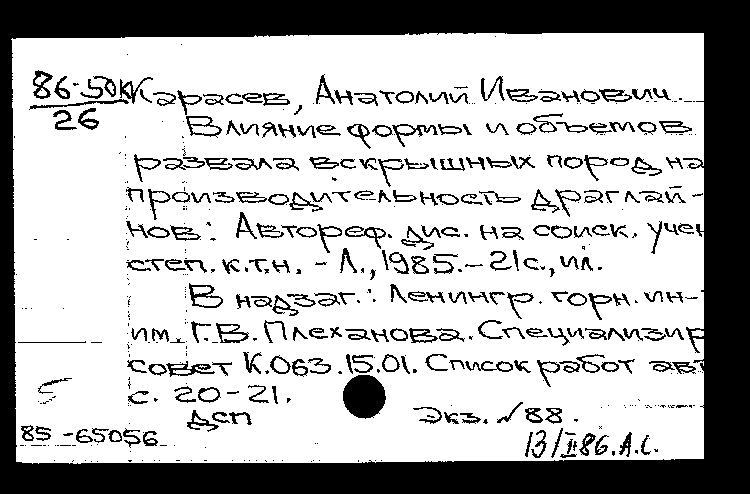 86-50к Карасев, Анатолий Иванович.
26
Влияние формы и объемов
развала вскрышных пород на
производительность драглай-
нов: Автореф. дис. на соиск. учен
степ. к.т.н. - Л., 1985.- 21с., ил.
В надзаг.: Ленингр. горн. ин-
им. Г.В. Плеханова. Специализир
совет К.063.15.01. Список работ авт
с. 20-21.
5
ДСП
Экз. №88.
85-65056
13/II 86. А.С.